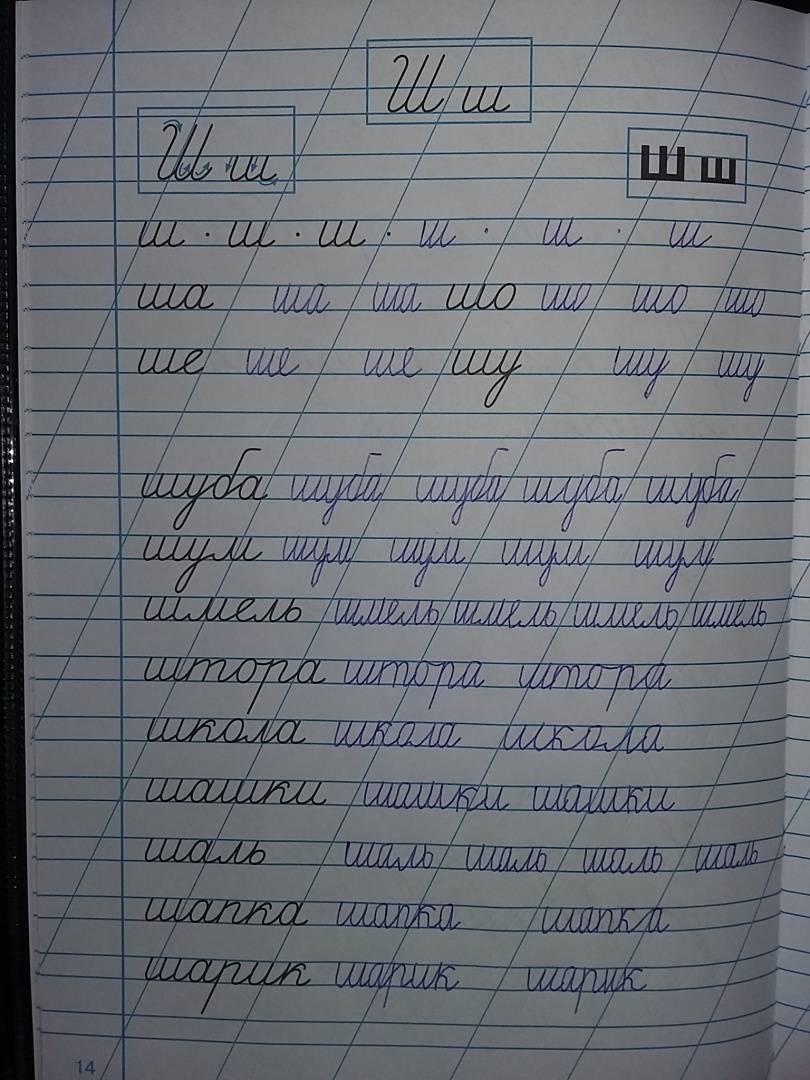 Ш ш
Ш ш
Ш ш
ш · ш · ш · ш · ш · ш
ша ша ша шо шо шо шо
ше ше ше шу шу шу
шуба шуба шуба шуба шуба
шум шум шум шум шум
шмель шмель шмель шмель шмель
штора штора штора
школа школа школа
шашки шашки шашки
шаль шаль шаль шаль шаль
шапка шапка шапка
шарик шарик шарик
14